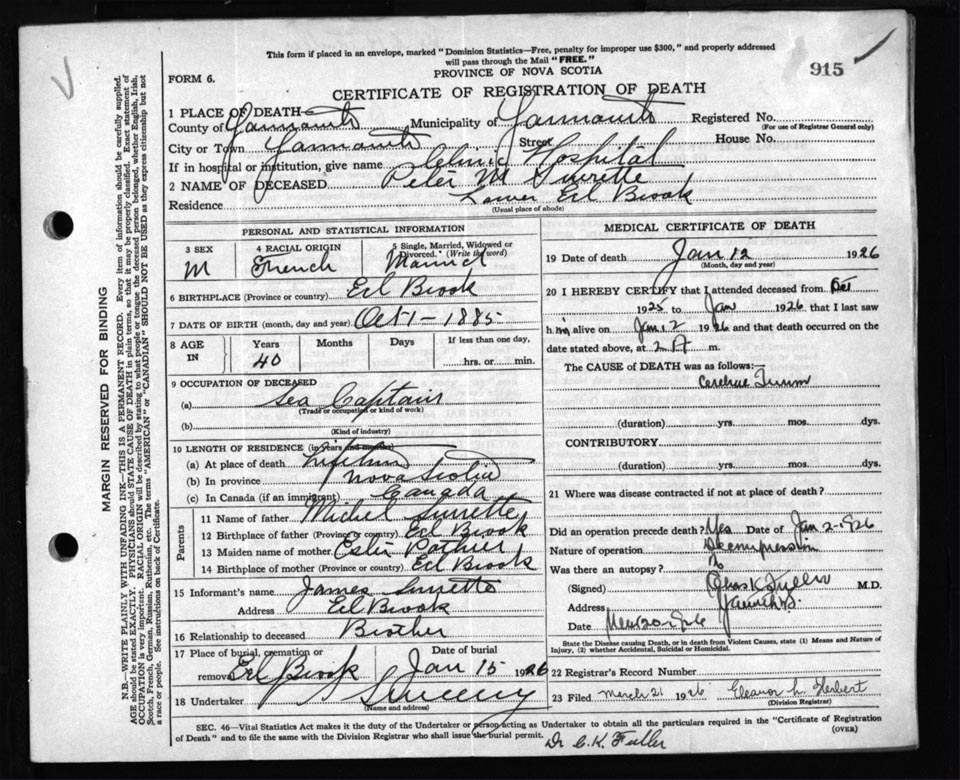 This form if placed in an envelope, marked "Dominion Statistics—Free, penalty for improper use $300," and properly addressed
will pass through the Mail "FREE."
915
FORM 6.
PROVINCE OF NOVA SCOTIA
CERTIFICATE OF REGISTRATION OF DEATH
1 PLACE OF DEATH
County of Yarmouth Municipality of Yarmouth Registered No.
(For use of Registrar General only)
City or Town Yarmouth Street House No.
If in hospital or institution, give name Clinic Hospital
2 NAME OF DECEASED Peter M Surette
Residence Lower Eel Brook
(Usual place of abode)
PERSONAL AND STATISTICAL INFORMATION
3 SEX 4 RACIAL ORIGIN 5 Single, Married, Widowed or
Divorced. (Write the word)
M French Married
6 BIRTHPLACE (Province or country) Eel Brook
7 DATE OF BIRTH (month, day and year) Oct 1 - 1885
8 AGE IN Years Months Days If less than one day,
40 hrs. or min.
9 OCCUPATION OF DECEASED
(a) Sea Captain
(Trade or occupation or kind of work)
(b)
(Kind of industry)
10 LENGTH OF RESIDENCE (in years and months)
(a) At place of death Lifetime
(b) In province Nova Scotia
(c) In Canada (if an immigrant) Canada
Parents
11 Name of father Michel Surrette
12 Birthplace of father (Province or country) Eel Brook
13 Maiden name of mother Ester Pothier
14 Birthplace of mother (Province or country) Eel Brook
15 Informant's name James Surrette
Address Eel Brook
16 Relationship to deceased Brother
17 Place of burial, cremation or Date of burial
removal Eel Brook Jan 15 1926
18 Undertaker Sweeny
(Name and address)
MEDICAL CERTIFICATE OF DEATH
19 Date of death Jan 12 1926
(Month, day and year)
20 I HEREBY CERTIFY that I attended deceased from
1925 to Jan 1926 that I last saw
him alive on Jan 12 1926 and that death occurred on the
date stated above, at 2 A m.
The CAUSE OF DEATH was as follows:—
(duration) yrs. mos. dys.
CONTRIBUTORY
(duration) yrs. mos. dys.
21 Where was disease contracted if not at place of death?
Did an operation precede death? Yes Date of Jan 2 - 926
Nature of operation Decompression
Was there an autopsy? No
(Signed) Chas K Fuller M.D.
Address Yarmouth
Date
State the Disease causing Death, or in death from Violent Causes, state (1) Means and Nature of
Injury, (2) whether Accidental, Suicidal or Homicidal.
22 Registration Record Number
23 Filed March 21 1926 Eleanor L. Herbert
(Division Registrar)
SEC. 46—Vital Statistics Act makes it the duty of the Undertaker or person acting as Undertaker to obtain all the particulars required in the "Certificate of Registration
of Death" and to file the same with the Division Registrar who shall issue the burial permit.
(OVER)
Dr C. K. Fuller
MARGIN RESERVED FOR BINDING
N.B.—WRITE PLAINLY WITH UNFADING INK—THIS IS A PERMANENT RECORD. Every item of information should be carefully supplied.
AGE should be stated EXACTLY. PHYSICIANS should STATE CAUSE OF DEATH in plain terms, so that it may be properly classified. Exact statement of
OCCUPATION is very important. RACIAL ORIGIN will be described by stating to what people or tongue the deceased person belonged, whether English, Irish,
Scotch, French, German, Russian, Ruthenian, etc. The terms "AMERICAN" or "CANADIAN" SHOULD NOT BE USED as they express citizenship but not
a race or people. See instructions on back of Certificate.